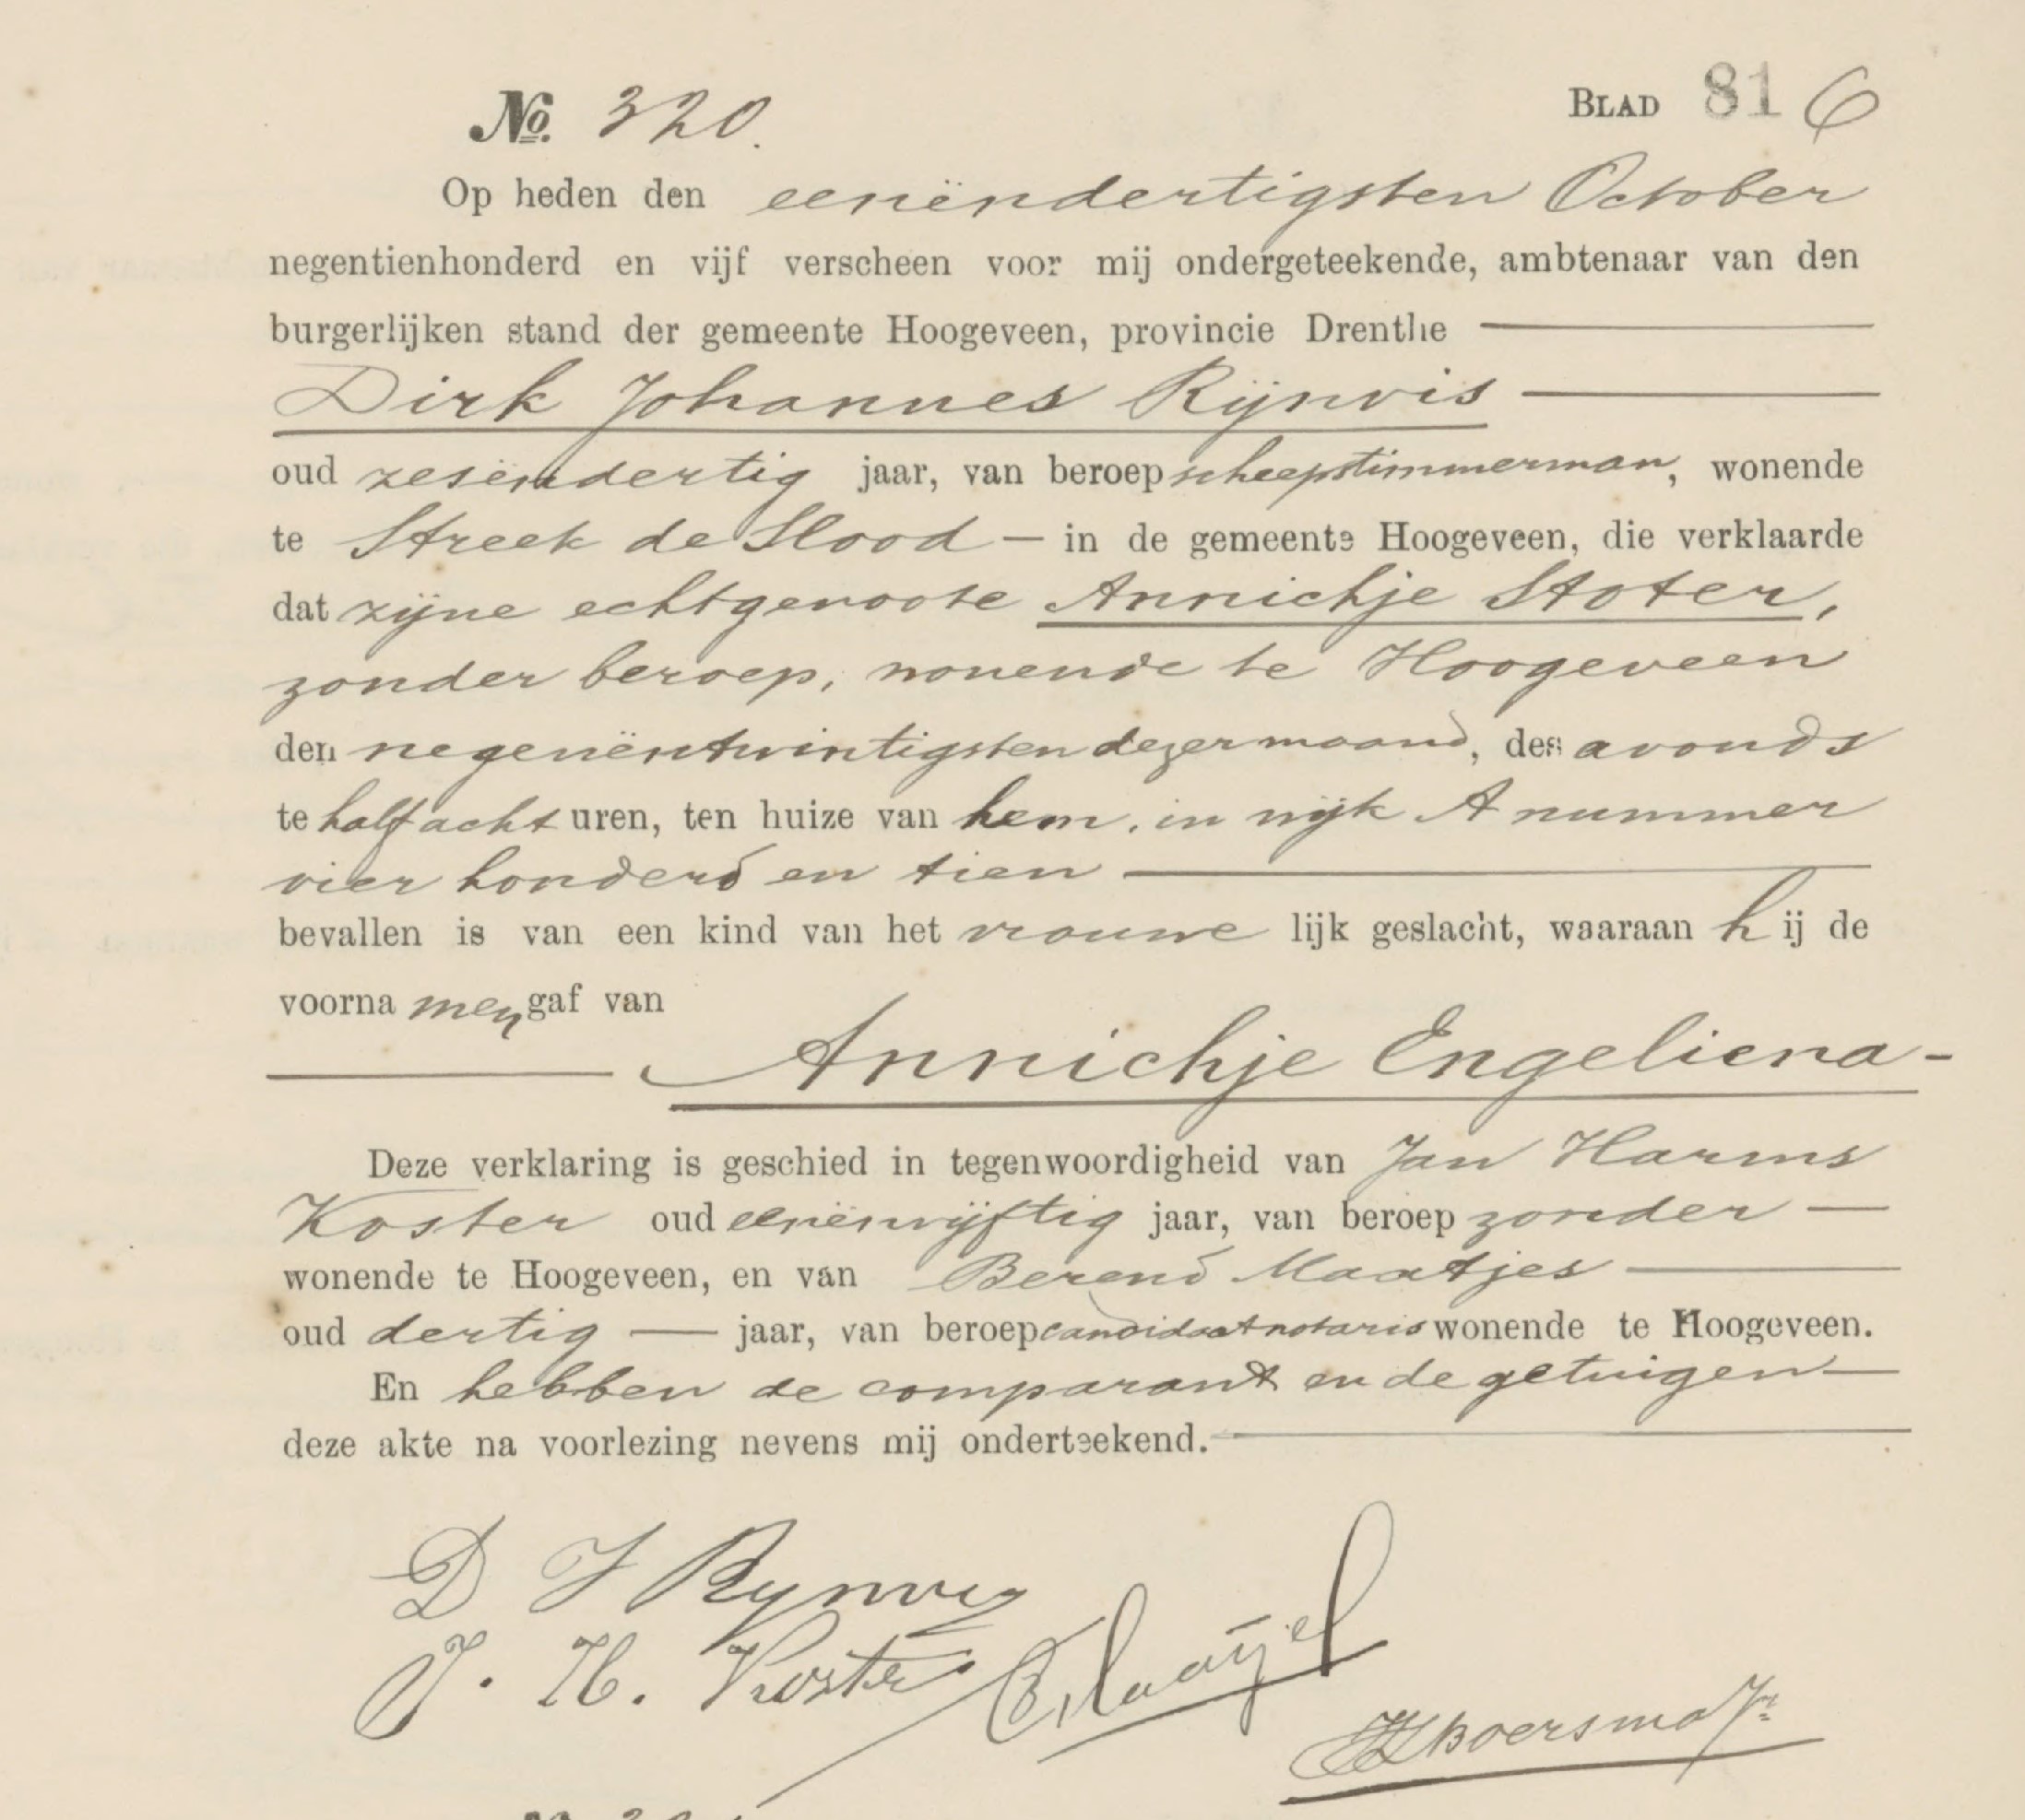 No. 320.
BLAD 816
Op heden den eenëndertigsten October
negentienhonderd en vijf verscheen voor mij ondergeteekende, ambtenaar van den
burgerlijken stand der gemeente Hoogeveen, provincie Drenthe
Dirk Johannes Rijnvis
oud zesëndertig jaar, van beroep scheepstimmerman, wonende
te Streek de Slood — in de gemeente Hoogeveen, die verklaarde
dat zijne echtgenoote Annichje Stoter,
zonder beroep, wonende te Hoogeveen
den negenëntwintigsten dezer maand, des avonds
te half acht uren, ten huize van hem, in wijk A nummer
vier honderd en tien
bevallen is van een kind van het vrouwe lijk geslacht, waaraan hij de
voornamen gaf van
Annichje Engeliena -
Deze verklaring is geschied in tegenwoordigheid van Jan Harms
Koster oud eenënvijftig jaar, van beroep zonder —
wonende te Hoogeveen, en van Berend Maatjes
oud dertig — jaar, van beroep candidaatnotaris wonende te Hoogeveen.
En hebben de comparant en de getuigen
deze akte na voorlezing nevens mij onderteekend.
D J Rynvis
J. H. Koster
Boersma Jr